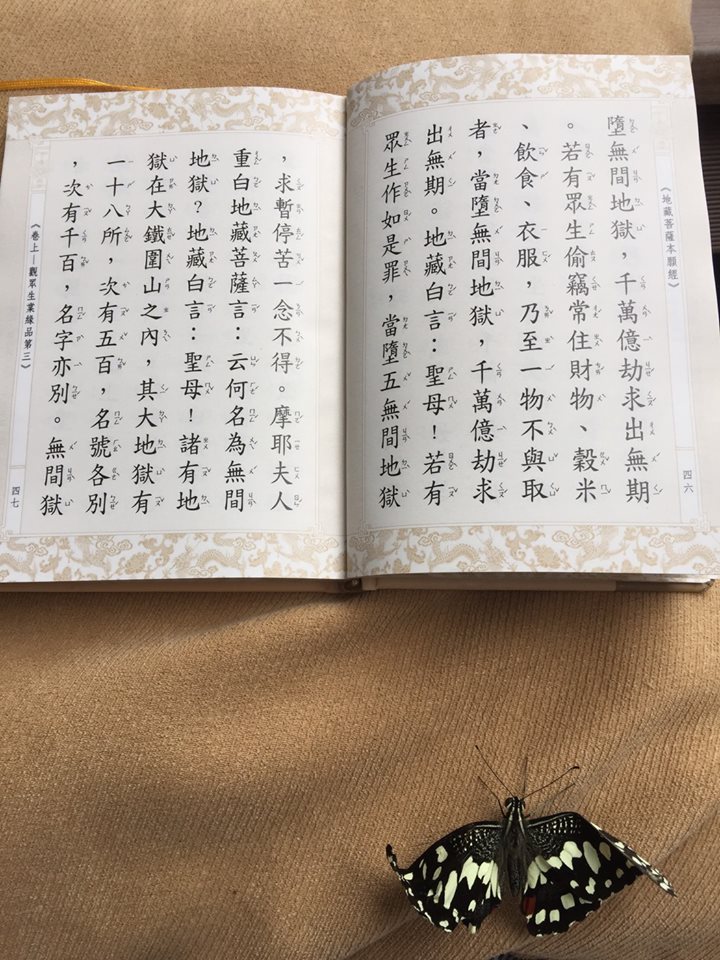 《地藏菩薩本願經》
四六
墮無間地獄，千萬億劫求出無期
。若有眾生偷竊常住財物、穀米
、飲食、衣服，乃至一物不與取
者，當墮無間地獄，千萬億劫求
出無期。地藏白言：聖母！若有
眾生作如是罪，當墮五無間地獄
，求暫停苦一念不得。摩耶夫人
重白地藏菩薩言：云何名為無間
地獄？地藏白言：聖母！諸有地
獄在大鐵圍山之內，其大地獄有
一十八所，次有五百，名號各別
，次有千百，名字亦別。無間獄
《卷上—觀眾生業緣品第三》
四七